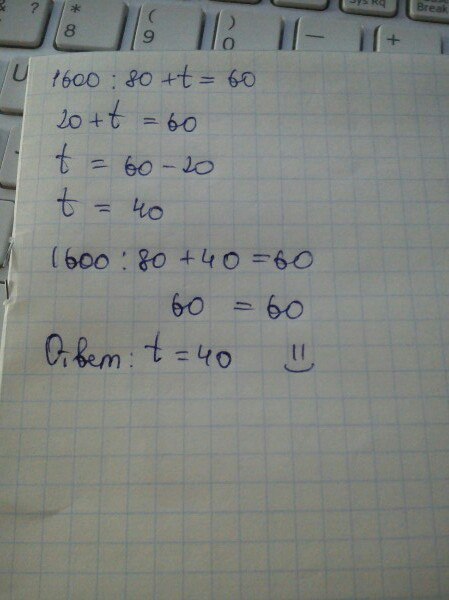 ? * 8 ( 9 ) 0 — + Sys Rq Break
U
1600 : 80 + t = 60
20 + t = 60
t = 60 - 20
t = 40
1600 : 80 + 40 = 60
60 = 60
Ответ: t = 40